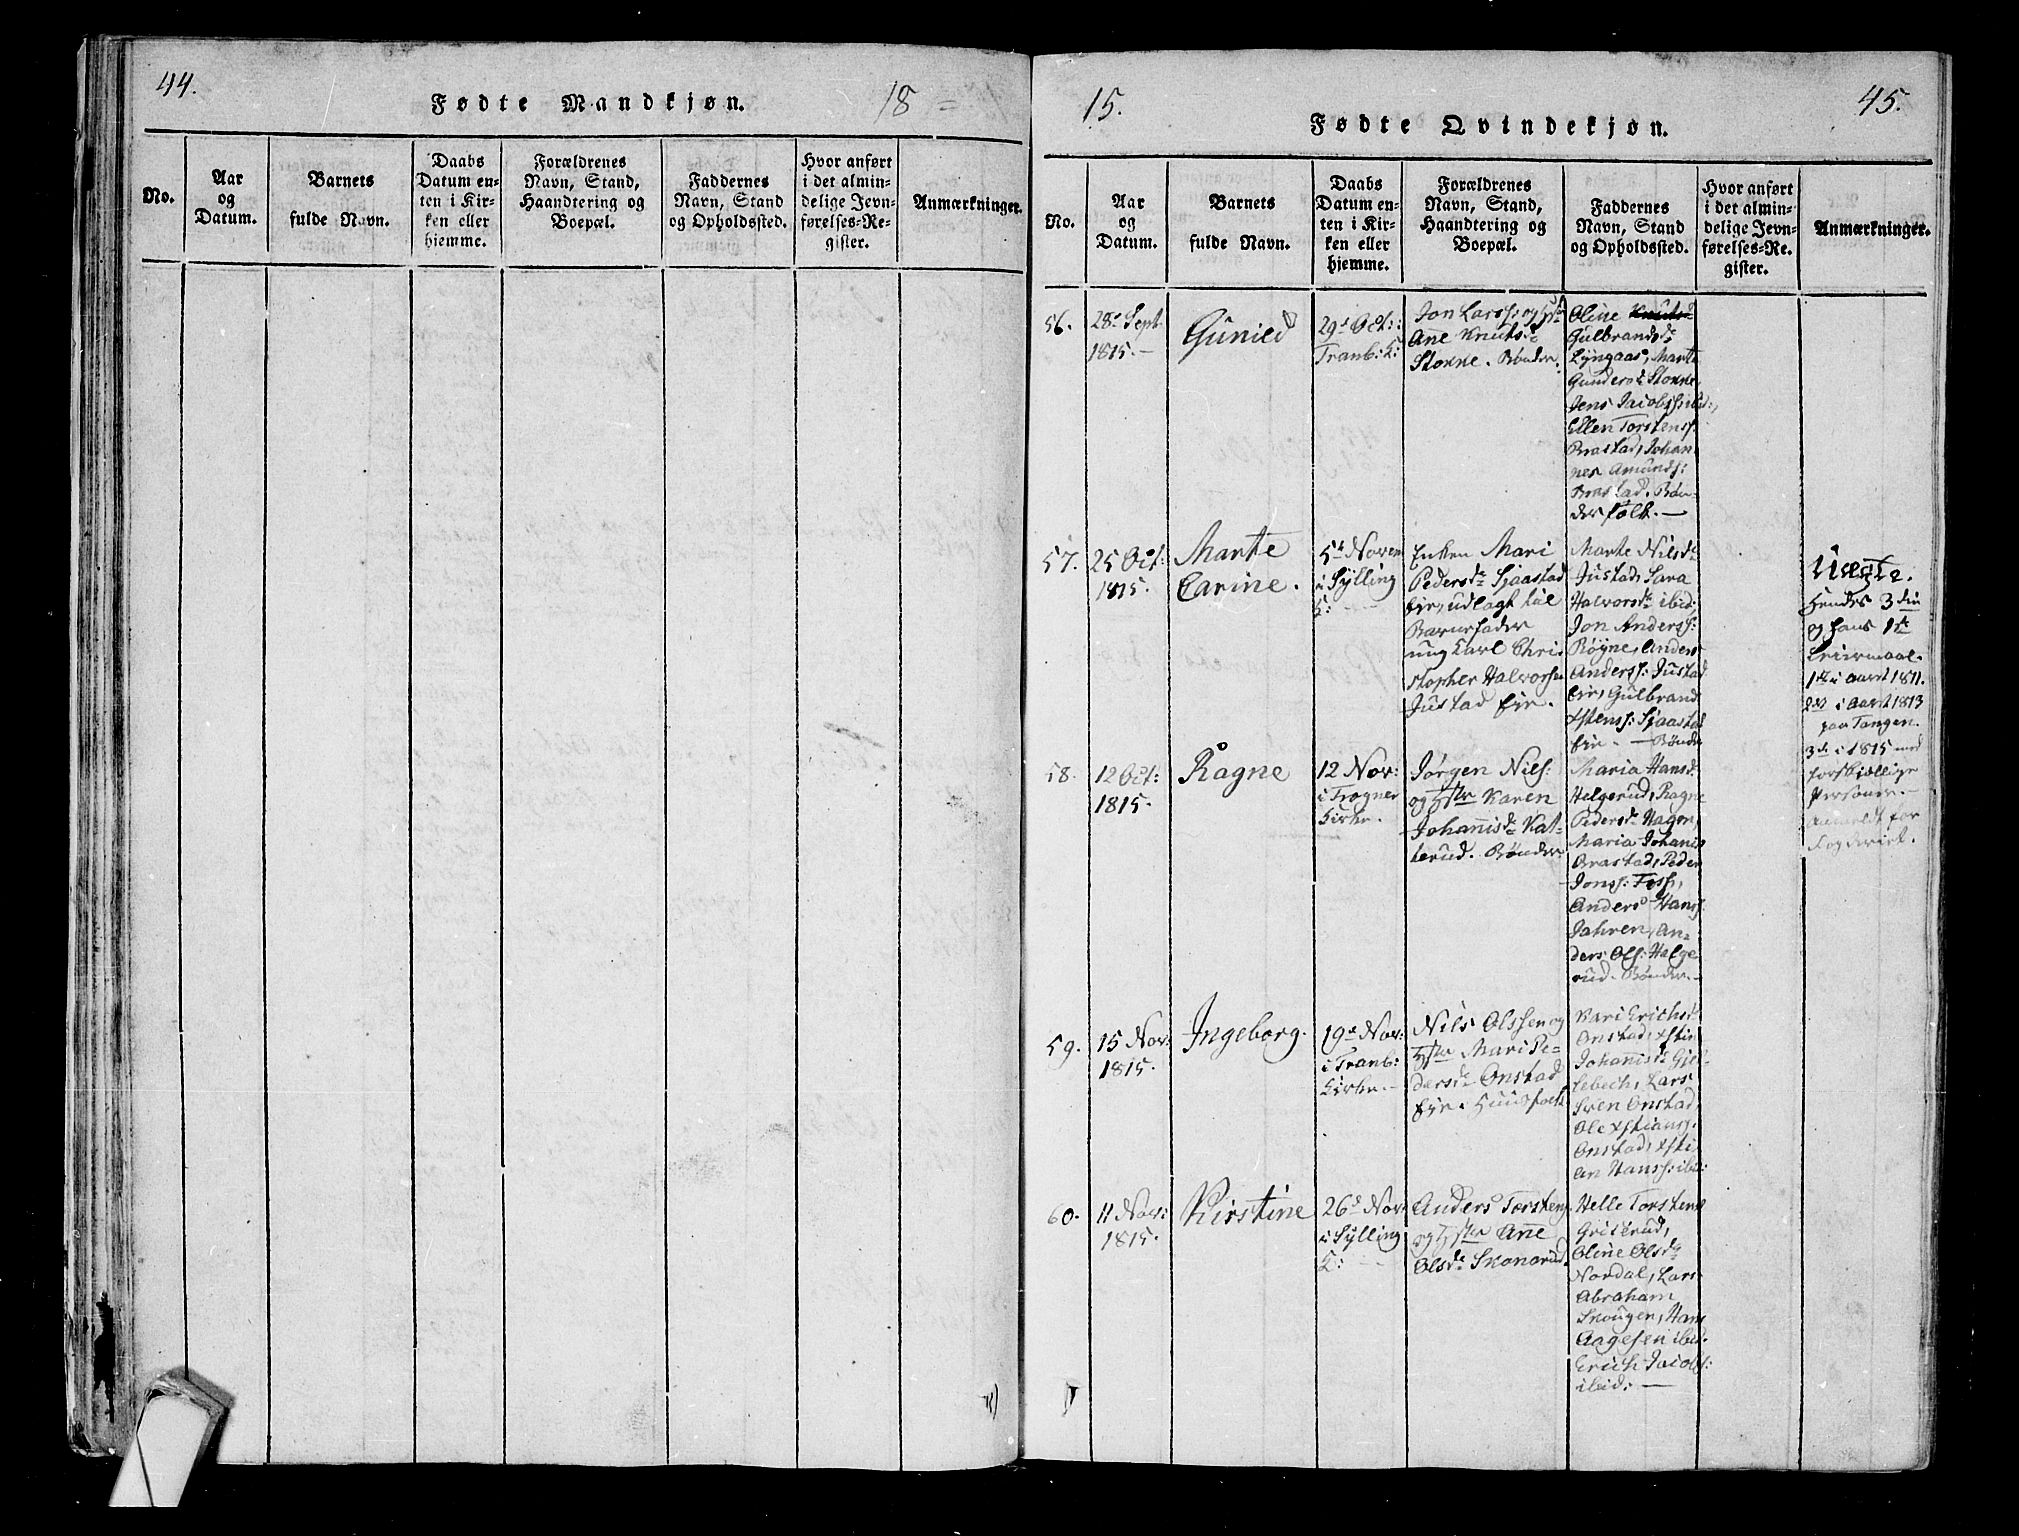 44.
Fødte Mandkjøn.
18
No.
Aar
og
Datum.
Barnets
fulde Navn.
Daabs
Datum en-
ten i Kir-
ken eller
hjemme.
Forældrenes
Navn, Stand,
Haandtering og
Boepæl.
Faddernes
Navn, Stand
og Opholdssted.
Hvor anført
i det almin-
delige Jevn-
førelses-Re-
gister.
Anmærkninger.
15.
45.
Fødte Qvindekjøn.
No.
Aar
og
Datum.
Barnets
fulde Navn.
Daabs
Datum en-
ten i Kir-
ken eller
hjemme.
Forældrenes
Navn, Stand,
Haandtering og
Boepæl.
Faddernes
Navn, Stand
og Opholdssted.
Hvor anført
i det almin-
delige Jevn-
førelses-Re-
gister.
Anmærkninger.
56.
28de Sept.
1815.
Gunild
29de Oct:
Tranb: K:
Jon Larss: og
Ane Knuts
Stokke. Bønder.
Oline
Gulbrandsd
Lyngaas, Marte
Gundersd Stokke,
Jens Jacobss: ibid:,
Ellen Torstens
Brastad, Johan
nes Amunds:
Brastad. Bøn-
der folk. —
57.
25 Oct:
1815.
Marte
Carine.
5te Novem
i Sylling
K:
Enken Mari
Pedersd Sjaastad
Eie, udlagt til
Barnefader
ung Carl Chri-
stopher Halvorsen
Justad Eie.
Marte Nilsd
Justad, Sara
Halvorsd ibid:
Jon Anderss:
Røyne, Anders
Anderss: Justad
Eie, Gulbrand
Xstenss: Sjaastad
Eie. — Bønder
Uægte.
Hendes 3die
og hans 1te
Leiermaal.
1te i Aaret 1811.
2det i Aaret 1813
paa Tangen.
3die i 1815 med
forskjellige
Personer. —
Anmeldt for
Fogderiet.
58.
12 Oct:
1815.
Ragne
12 Nov:
i Frogner
Kirke.
Jørgen Niels:
og Hstr Karen
Johannisd Kat-
terud. Bønder
Maria Hansd
Helgerud, Ragne
Pedersd Hagen,
Maria Johanis
Brastad, Peder
Jonss: Foss,
Anders Hanss
Jahren, An-
ders Ols: Helge
rud. Bønder. —
59.
15 Nov:
1815.
Ingeborg.
19de Nov:
i Tranb:
Kirke. —
Nils Olssen og
Hstr Mari Pe-
dersd Onstad
Eie. Huusfolk
Kari Erichsd
Onstad, Xstin
Johanisd Gjel-
lebech, Lars
Sven Onstad,
Ole Xstianss.
Onstad, Xsti
an Hanss: ibid:
60.
11 Nov:
1815.
Kirstine
26de Nov:
i Sylling
K:
Anders Torstens
og Hstr Ane
Olsd Skonerud.
Helle Torstens
Griserud,
Oline Olsd
Nordal, Lars
Abraham
Skougen, Hans
Aagesen ibid.
Erich Jacobs:
ibid: —